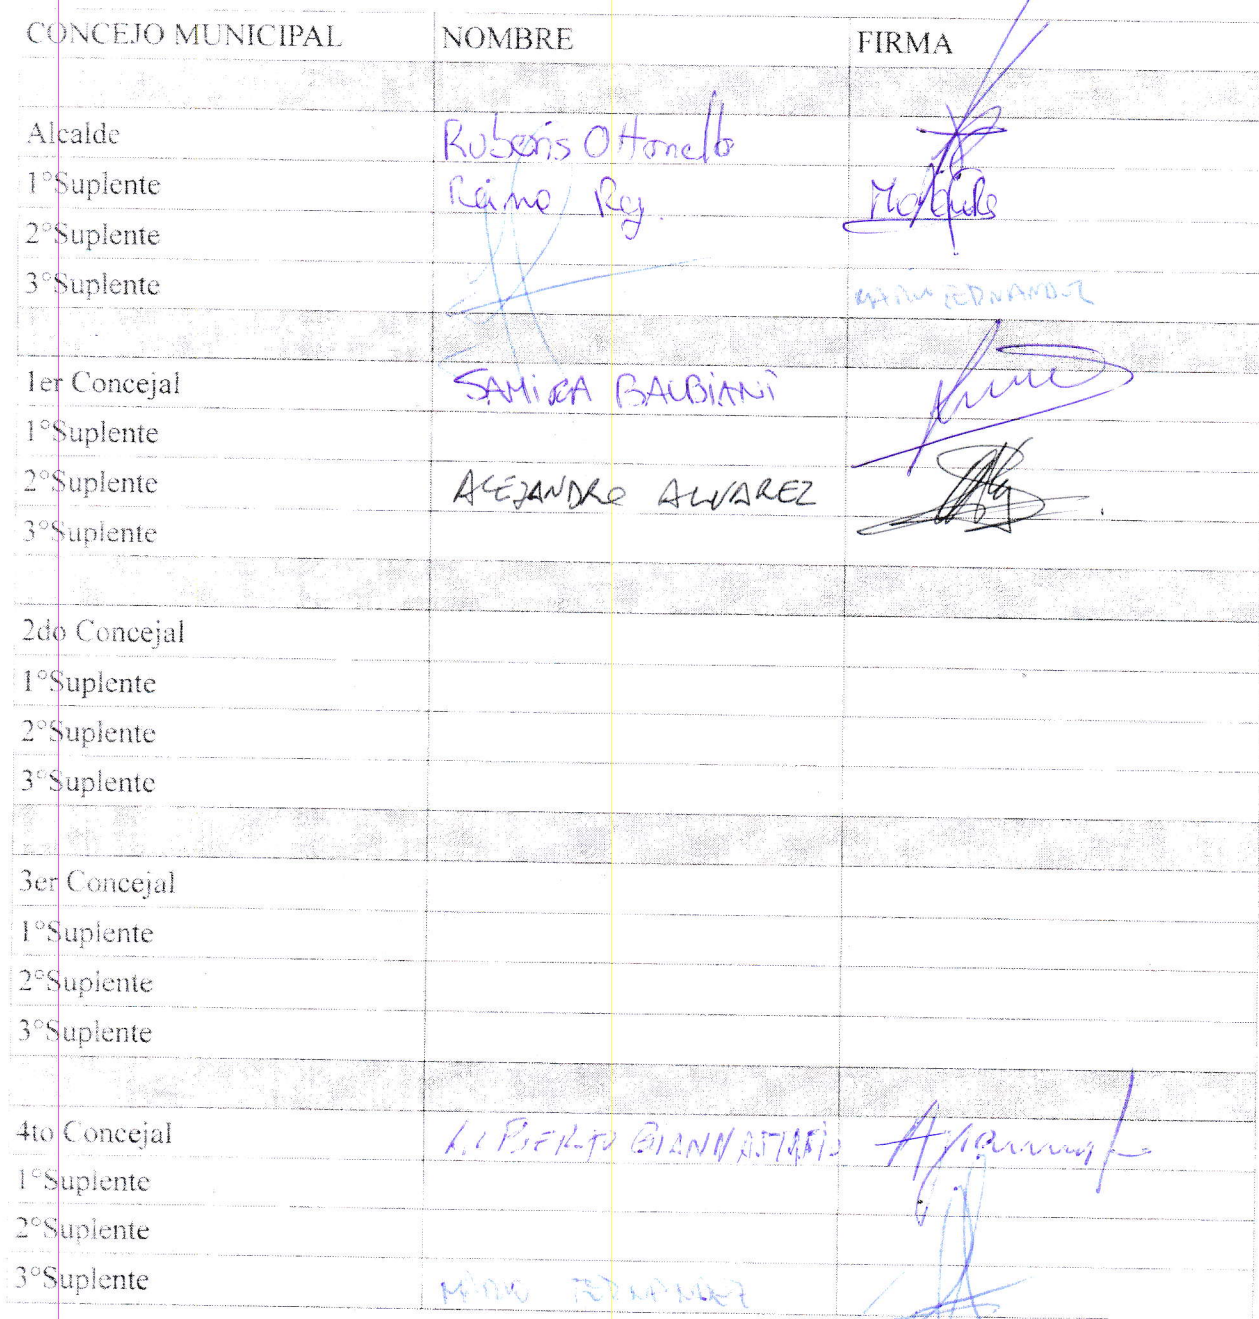 CONCEJO MUNICIPAL NOMBRE FIRMA
Alcalde Rubens Ottonello
1°Suplente
2°Suplente
3°Suplente FERNANDEZ
1er Concejal SAMIRA BALBIANI
1°Suplente
2°Suplente ALEJANDRO ALVAREZ
3°Suplente
2do Concejal
1°Suplente
2°Suplente
3°Suplente
3er Concejal
1°Suplente
2°Suplente
3°Suplente
4to Concejal
1°Suplente
2°Suplente
3°Suplente MARIO FERNANDEZ